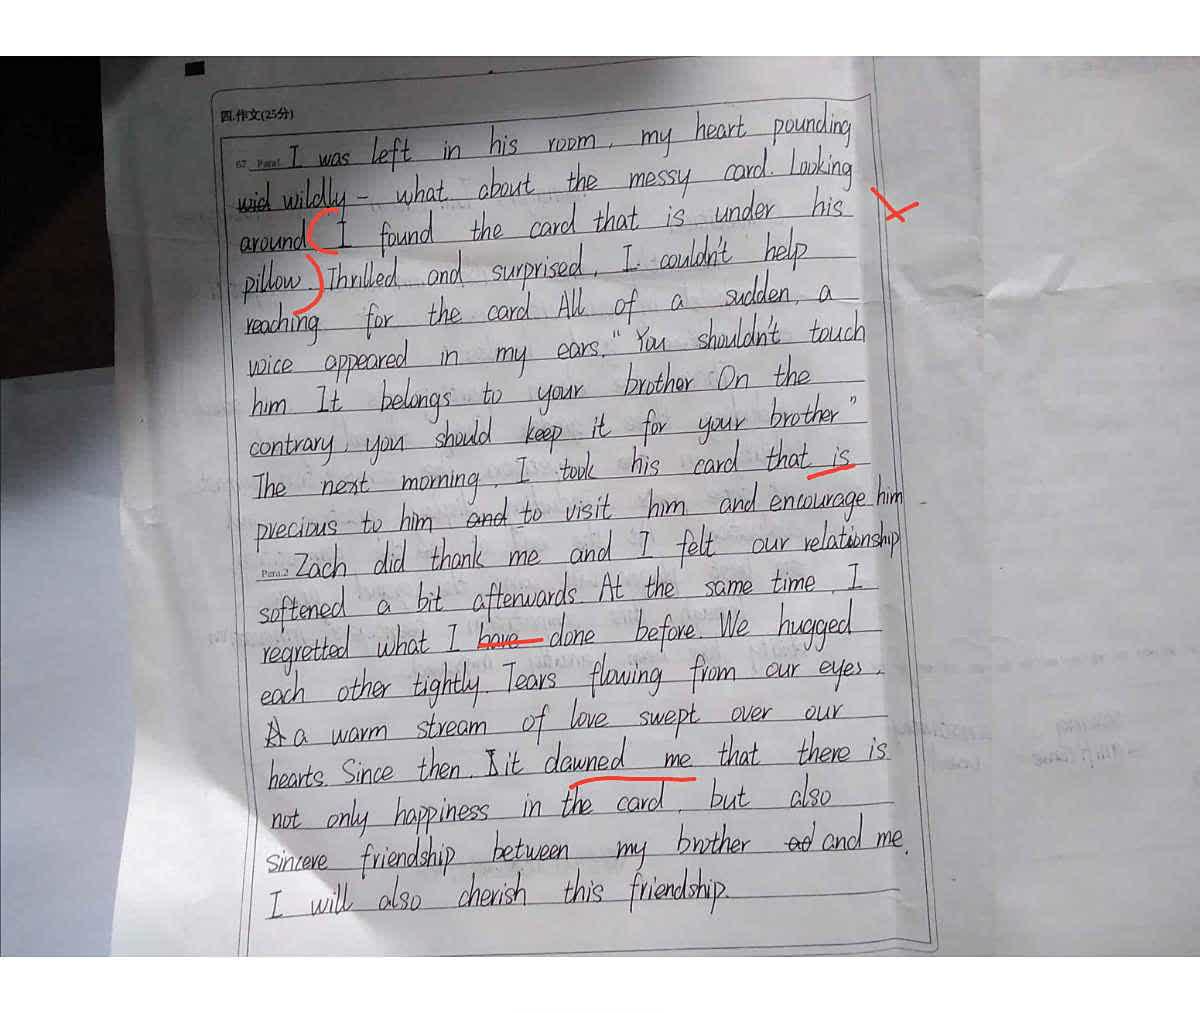 四.作文(25分)
67. Para1 I was left in his room, my heart pounding
wid wildly - what about the messy card. Looking
around I found the card that is under his
pillow. Thrilled and surprised, I couldn't help
reaching for the card All of a sudden, a
voice appeared in my ears, "You shouldn't touch
him It belongs to your brother On the
contrary, you should keep it for your brother"
The next morning, I took his card that is
precious to him and to visit him and encourage him
Para.2 Zach did thank me and I felt our relationship
softened a bit afterwards At the same time, I
regretted what I have done before. We hugged
each other tightly. Tears flowing from our eyes.
A a warm stream of love swept over our
hearts. Since then, I it dawned me that there is
not only happiness in the card, but also
sincere friendship between my brother ad and me.
I will also cherish this friendship.